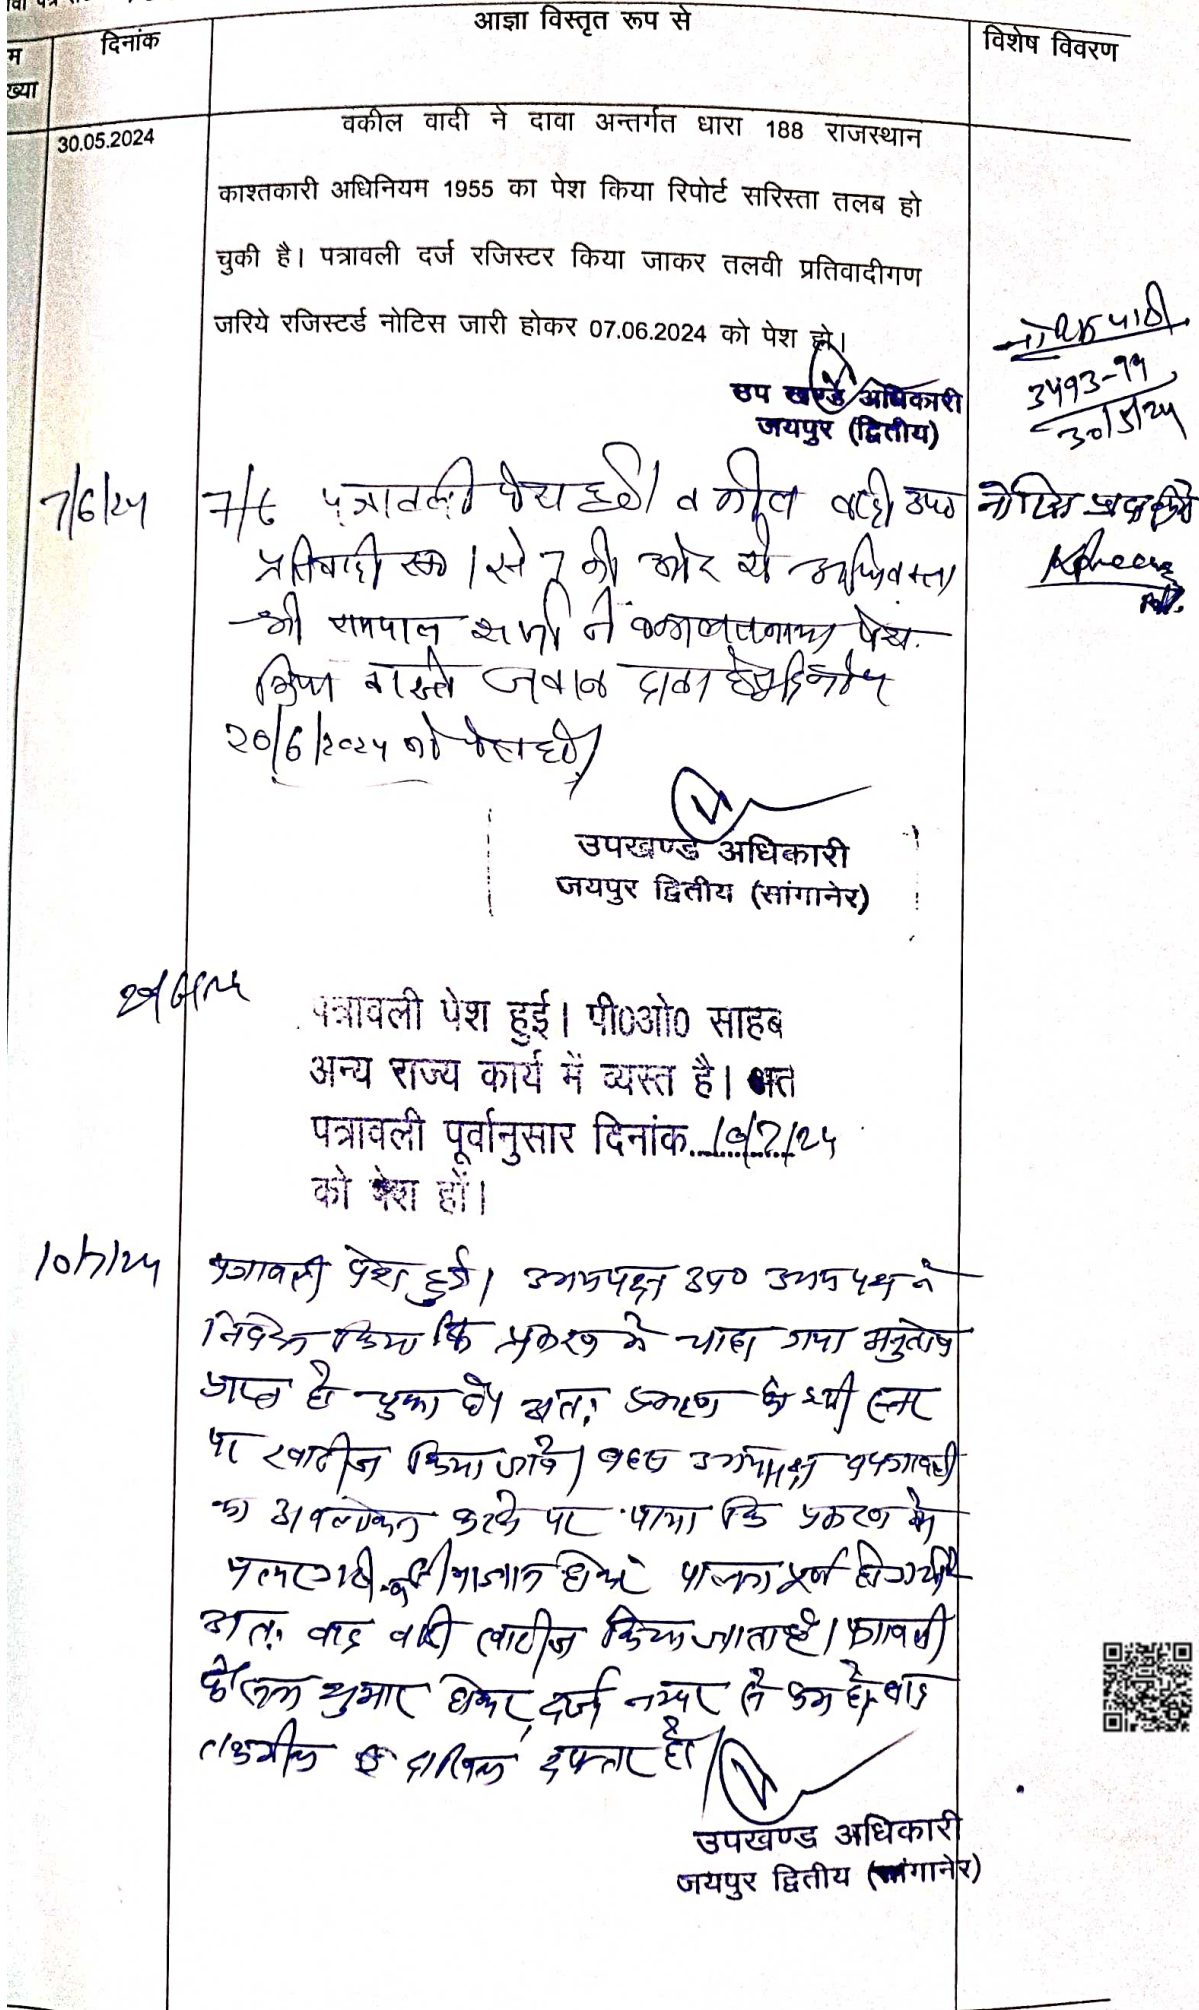 आज्ञा विस्तृत रूप से
दिनांक
विशेष विवरण
म
ख्या
30.05.2024
वकील वादी ने दावा अन्तर्गत धारा 188 राजस्थान
काश्तकारी अधिनियम 1955 का पेश किया रिपोर्ट सरिस्ता तलब हो
चुकी है। पत्रावली दर्ज रजिस्टर किया जाकर तलवी प्रतिवादीगण
जरिये रजिस्टर्ड नोटिस जारी होकर 07.06.2024 को पेश हो।
3493-99
30/5/24
उप खण्ड अधिकारी
जयपुर (द्वितीय)
7/6/24
7/6 पत्रावली पेश हुई। वकील वादी उप०
नोटिस
प्रतिवादी सं० 1 से 7 की ओर से अधिवक्ता
श्री रामपाल शर्मा ने वकालतनामा पेश
किया वास्ते जवाब दावा हेतु दिनांक
20/6/2024 को पेश हो।
उपखण्ड अधिकारी
जयपुर द्वितीय (सांगानेर)
पत्रावली पेश हुई। पी0ओ0 साहब
अन्य राज्य कार्य में व्यस्त है। अत
पत्रावली पूर्वानुसार दिनांक 10/7/24
को पेश हों।
10/7/24
पत्रावली पेश हुई। उभयपक्ष उप० उभयपक्ष ने
निवेदन किया कि प्रकरण में चाहा गया अनुतोष
प्राप्त हो चुका है। अतः प्रकरण को इसी स्तर
पर खारीज किया जावे। बहस उभयपक्ष व पत्रावली
का अवलोकन करने पर पाया कि प्रकरण में
पालना पूर्ण हो गयी है
अतः वाद वादी खारीज किया जाता है। पत्रावली
फैसल शुमार होकर, दर्ज नम्बर से कम हो, बाद
तकमील दाखिल दफ्तर हो।
उपखण्ड अधिकारी
जयपुर द्वितीय (सांगानेर)